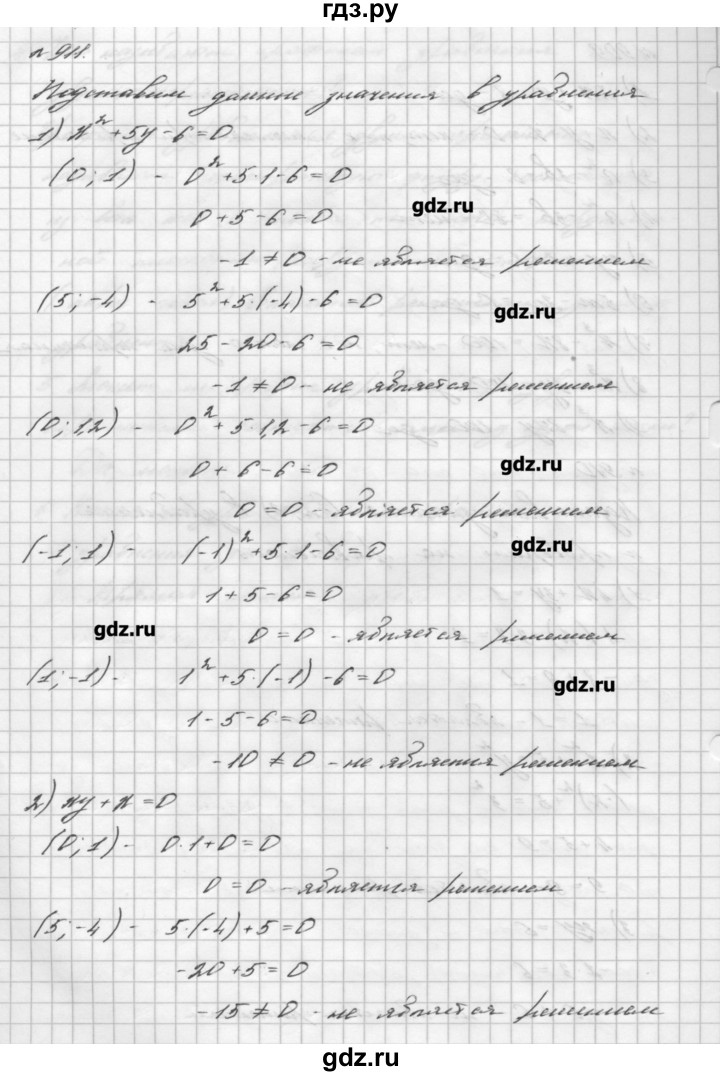 гдз.ру
№ 911.
Подставим данные значения в уравнения
1) x² + 5y - 6 = 0
(0; 1) - 0² + 5·1 - 6 = 0
gdz.ru
0 + 5 - 6 = 0
-1 ≠ 0 - не является решением
(5; -4) - 5² + 5·(-4) - 6 = 0
gdz.ru
25 - 20 - 6 = 0
-1 ≠ 0 - не является решением
(0; 1,2) - 0² + 5·1,2 - 6 = 0
gdz.ru
0 + 6 - 6 = 0
0 = 0 - является решением
(-1; 1) - (-1)² + 5·1 - 6 = 0
gdz.ru
1 + 5 - 6 = 0
gdz.ru
0 = 0 - является решением
(1; -1) - 1² + 5·(-1) - 6 = 0
gdz.ru
1 - 5 - 6 = 0
-10 ≠ 0 - не является решением
2) xy + x = 0
(0; 1) - 0·1 + 0 = 0
0 = 0 - является решением
(5; -4) - 5·(-4) + 5 = 0
-20 + 5 = 0
-15 ≠ 0 - не является решением
gdz.ru